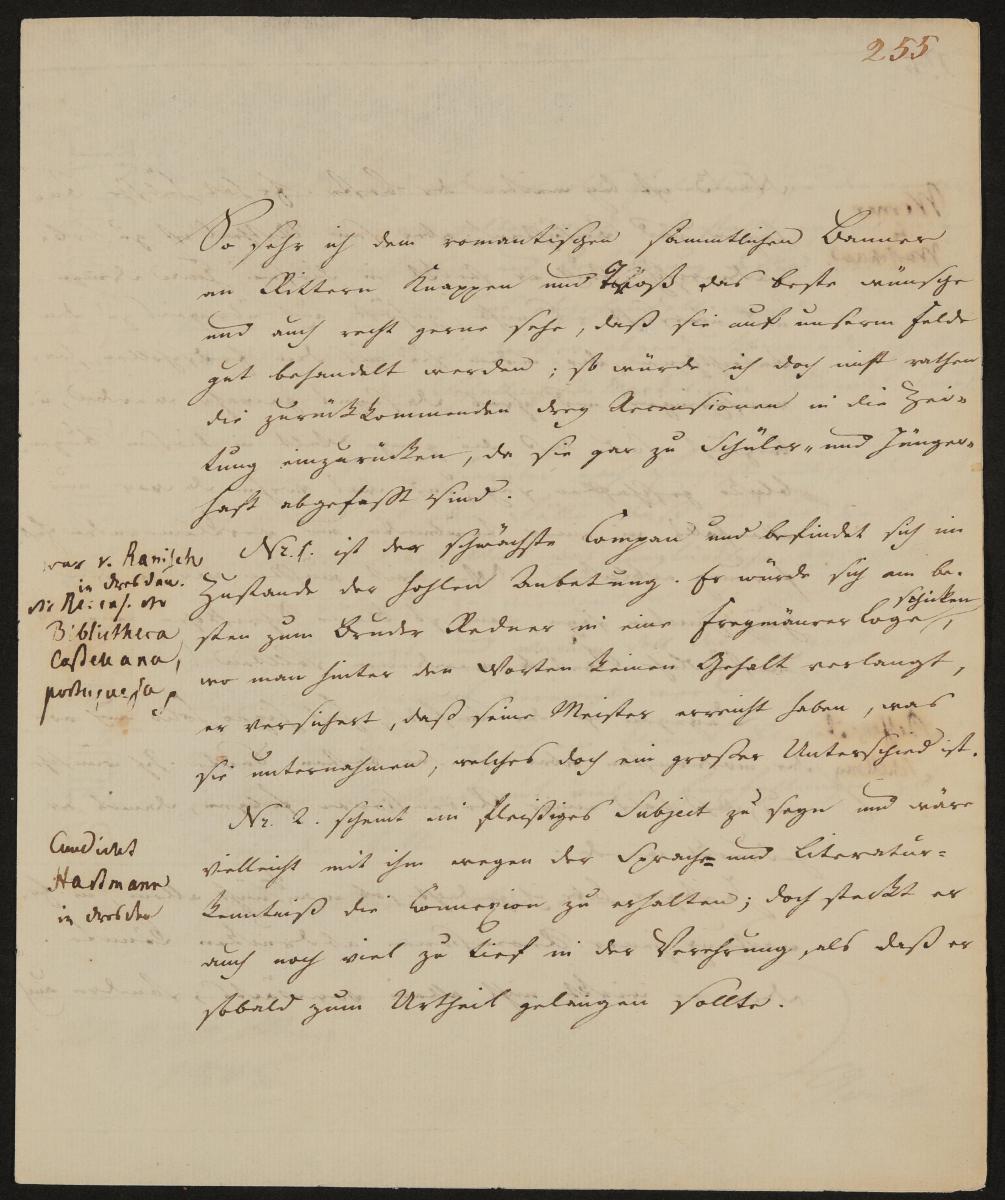 255
So sehr ich dem romantischen sämmtlichen Banner
an Rittern Knappen und Troß das beste wünsche
und auch recht gerne sehe, daß sie auf unserm Felde
gut behandelt werden; so würde ich doch nicht rathen
die zurückkommenden drey Recensionen in die Zei-
tung einzurücken, da sie gar zu Schüler- und Jünger-
haft abgefasst sind.
Nr. 1. ist der schwächste Compan und befindet sich im
Zustande der hohlen Anbetung. Er würde sich am be-
sten zum Bruder Redner in eine Freymäurer Loge schicken,
wo man hinter den Worten keinen Gehalt verlangt,
er versichert, daß seine Meister erreicht haben, was
sie unternahmen, welches doch ein großer Unterschied ist.
Nr. 2. scheint ein fleißiges Subject zu seyn und wäre
vielleicht mit ihm wegen der Sprach- und Literatur-
kenntniß die Connexion zu erhalten; doch steckt er
auch noch viel zu tief in der Verehrung, als daß er
sobald zum Urtheil gelangen sollte.
war v. Ranisch
in Dresden.
die Recens. der
Bibliotheca
Castellana,
portuguesa
Candidat
Hastmann
in Dresden